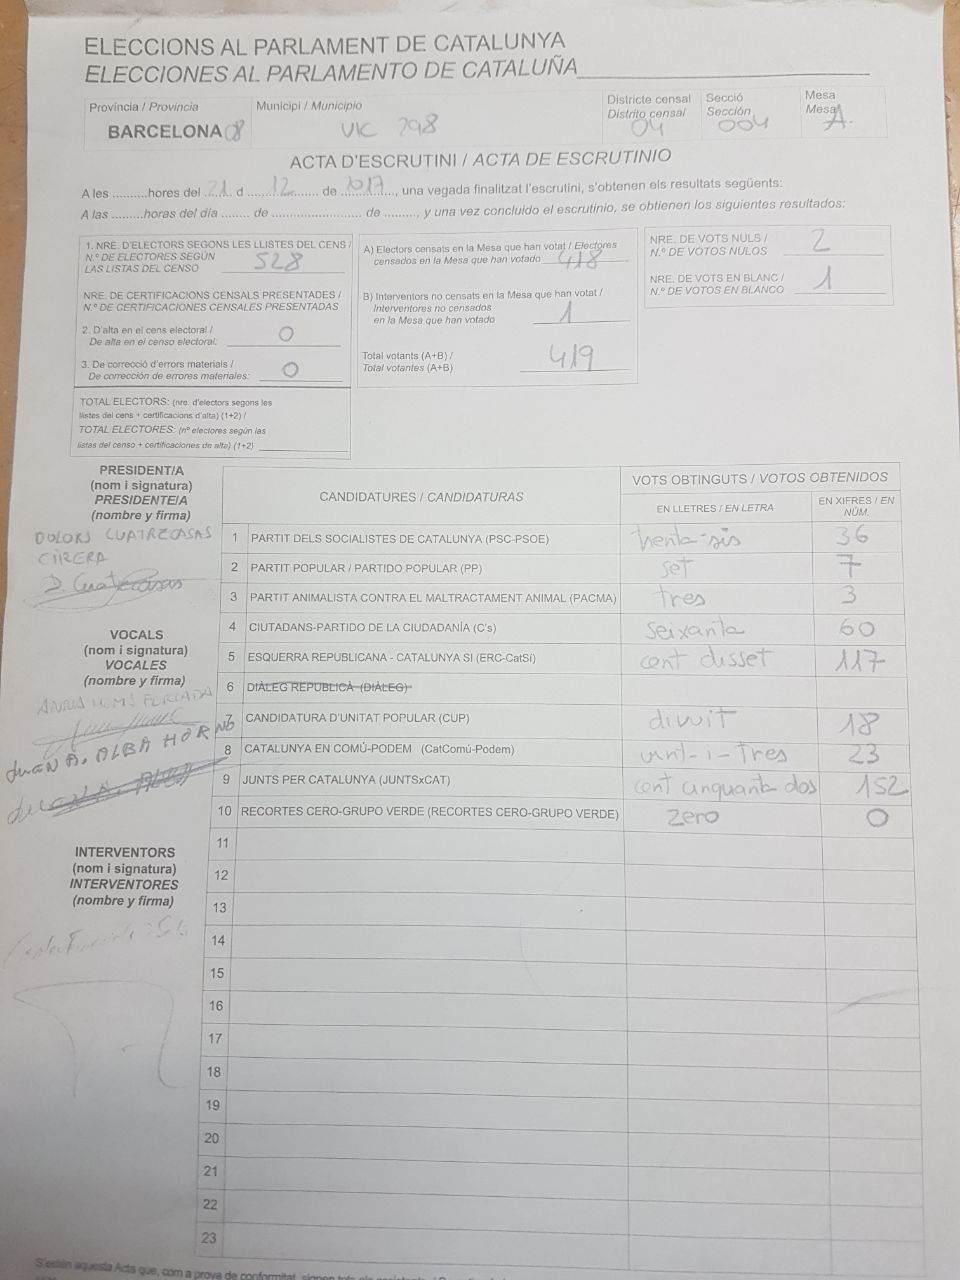 ELECCIONS AL PARLAMENT DE CATALUNYA
ELECCIONES AL PARLAMENTO DE CATALUÑA
Província / Provincia
BARCELONA 08
Municipi / Municipio
VIC 298
Districte censal
Distrito censal
04
Secció
Sección
004
Mesa
Mesa
A.
ACTA D'ESCRUTINI / ACTA DE ESCRUTINIO
A les ..........hores del 21 d 12 de 2017, una vegada finalitzat l'escrutini, s'obtenen els resultats següents:
A las .........horas del día ........ de .......................... de .........., y una vez concluido el escrutinio, se obtienen los siguientes resultados:
1. NRE. D'ELECTORS SEGONS LES LLISTES DEL CENS /
N.º DE ELECTORES SEGÚN
LAS LISTAS DEL CENSO 528
NRE. DE CERTIFICACIONS CENSALS PRESENTADES /
N.º DE CERTIFICACIONES CENSALES PRESENTADAS
2. D'alta en el cens electoral /
De alta en el censo electoral: 0
3. De correcció d'errors materials /
De corrección de errores materiales: 0
TOTAL ELECTORS: (nre. d'electors segons les
llistes del cens + certificacions d'alta) (1+2) /
TOTAL ELECTORES: (nº electores según las
listas del censo + certificaciones de alta) (1+2)
A) Electors censats en la Mesa que han votat / Electores
censados en la Mesa que han votado 418
B) Interventors no censats en la Mesa que han votat /
Interventores no censados
en la Mesa que han votado 1
Total votants (A+B) /
Total votantes (A+B) 419
NRE. DE VOTS NULS /
N.º DE VOTOS NULOS 2
NRE. DE VOTS EN BLANC /
N.º DE VOTOS EN BLANCO 1
PRESIDENT/A
(nom i signatura)
PRESIDENTE/A
(nombre y firma)
DOLORS CUATRECASAS
CIRERA
D. Cuatrecasas
VOCALS
(nom i signatura)
VOCALES
(nombre y firma)
JUAN A. ALBA HORNO
INTERVENTORS
(nom i signatura)
INTERVENTORES
(nombre y firma)
CANDIDATURES / CANDIDATURAS
VOTS OBTINGUTS / VOTOS OBTENIDOS
EN LLETRES / EN LETRA
EN XIFRES / EN
NÚM.
1 PARTIT DELS SOCIALISTES DE CATALUNYA (PSC-PSOE) trenta-sis 36
2 PARTIT POPULAR / PARTIDO POPULAR (PP) set 7
3 PARTIT ANIMALISTA CONTRA EL MALTRACTAMENT ANIMAL (PACMA) tres 3
4 CIUTADANS-PARTIDO DE LA CIUDADANÍA (C's) seixanta 60
5 ESQUERRA REPUBLICANA - CATALUNYA SI (ERC-CatSí) cent disset 117
6 DIÀLEG REPUBLICÀ (DIÀLEG)
7 CANDIDATURA D'UNITAT POPULAR (CUP) divuit 18
8 CATALUNYA EN COMÚ-PODEM (CatComú-Podem) vint-i-tres 23
9 JUNTS PER CATALUNYA (JUNTSxCAT) cent cinquanta dos 152
10 RECORTES CERO-GRUPO VERDE (RECORTES CERO-GRUPO VERDE) zero 0
11
12
13
14
15
16
17
18
19
20
21
22
23
S'estén aquesta Acta que, com a prova de conformitat, signen tots els